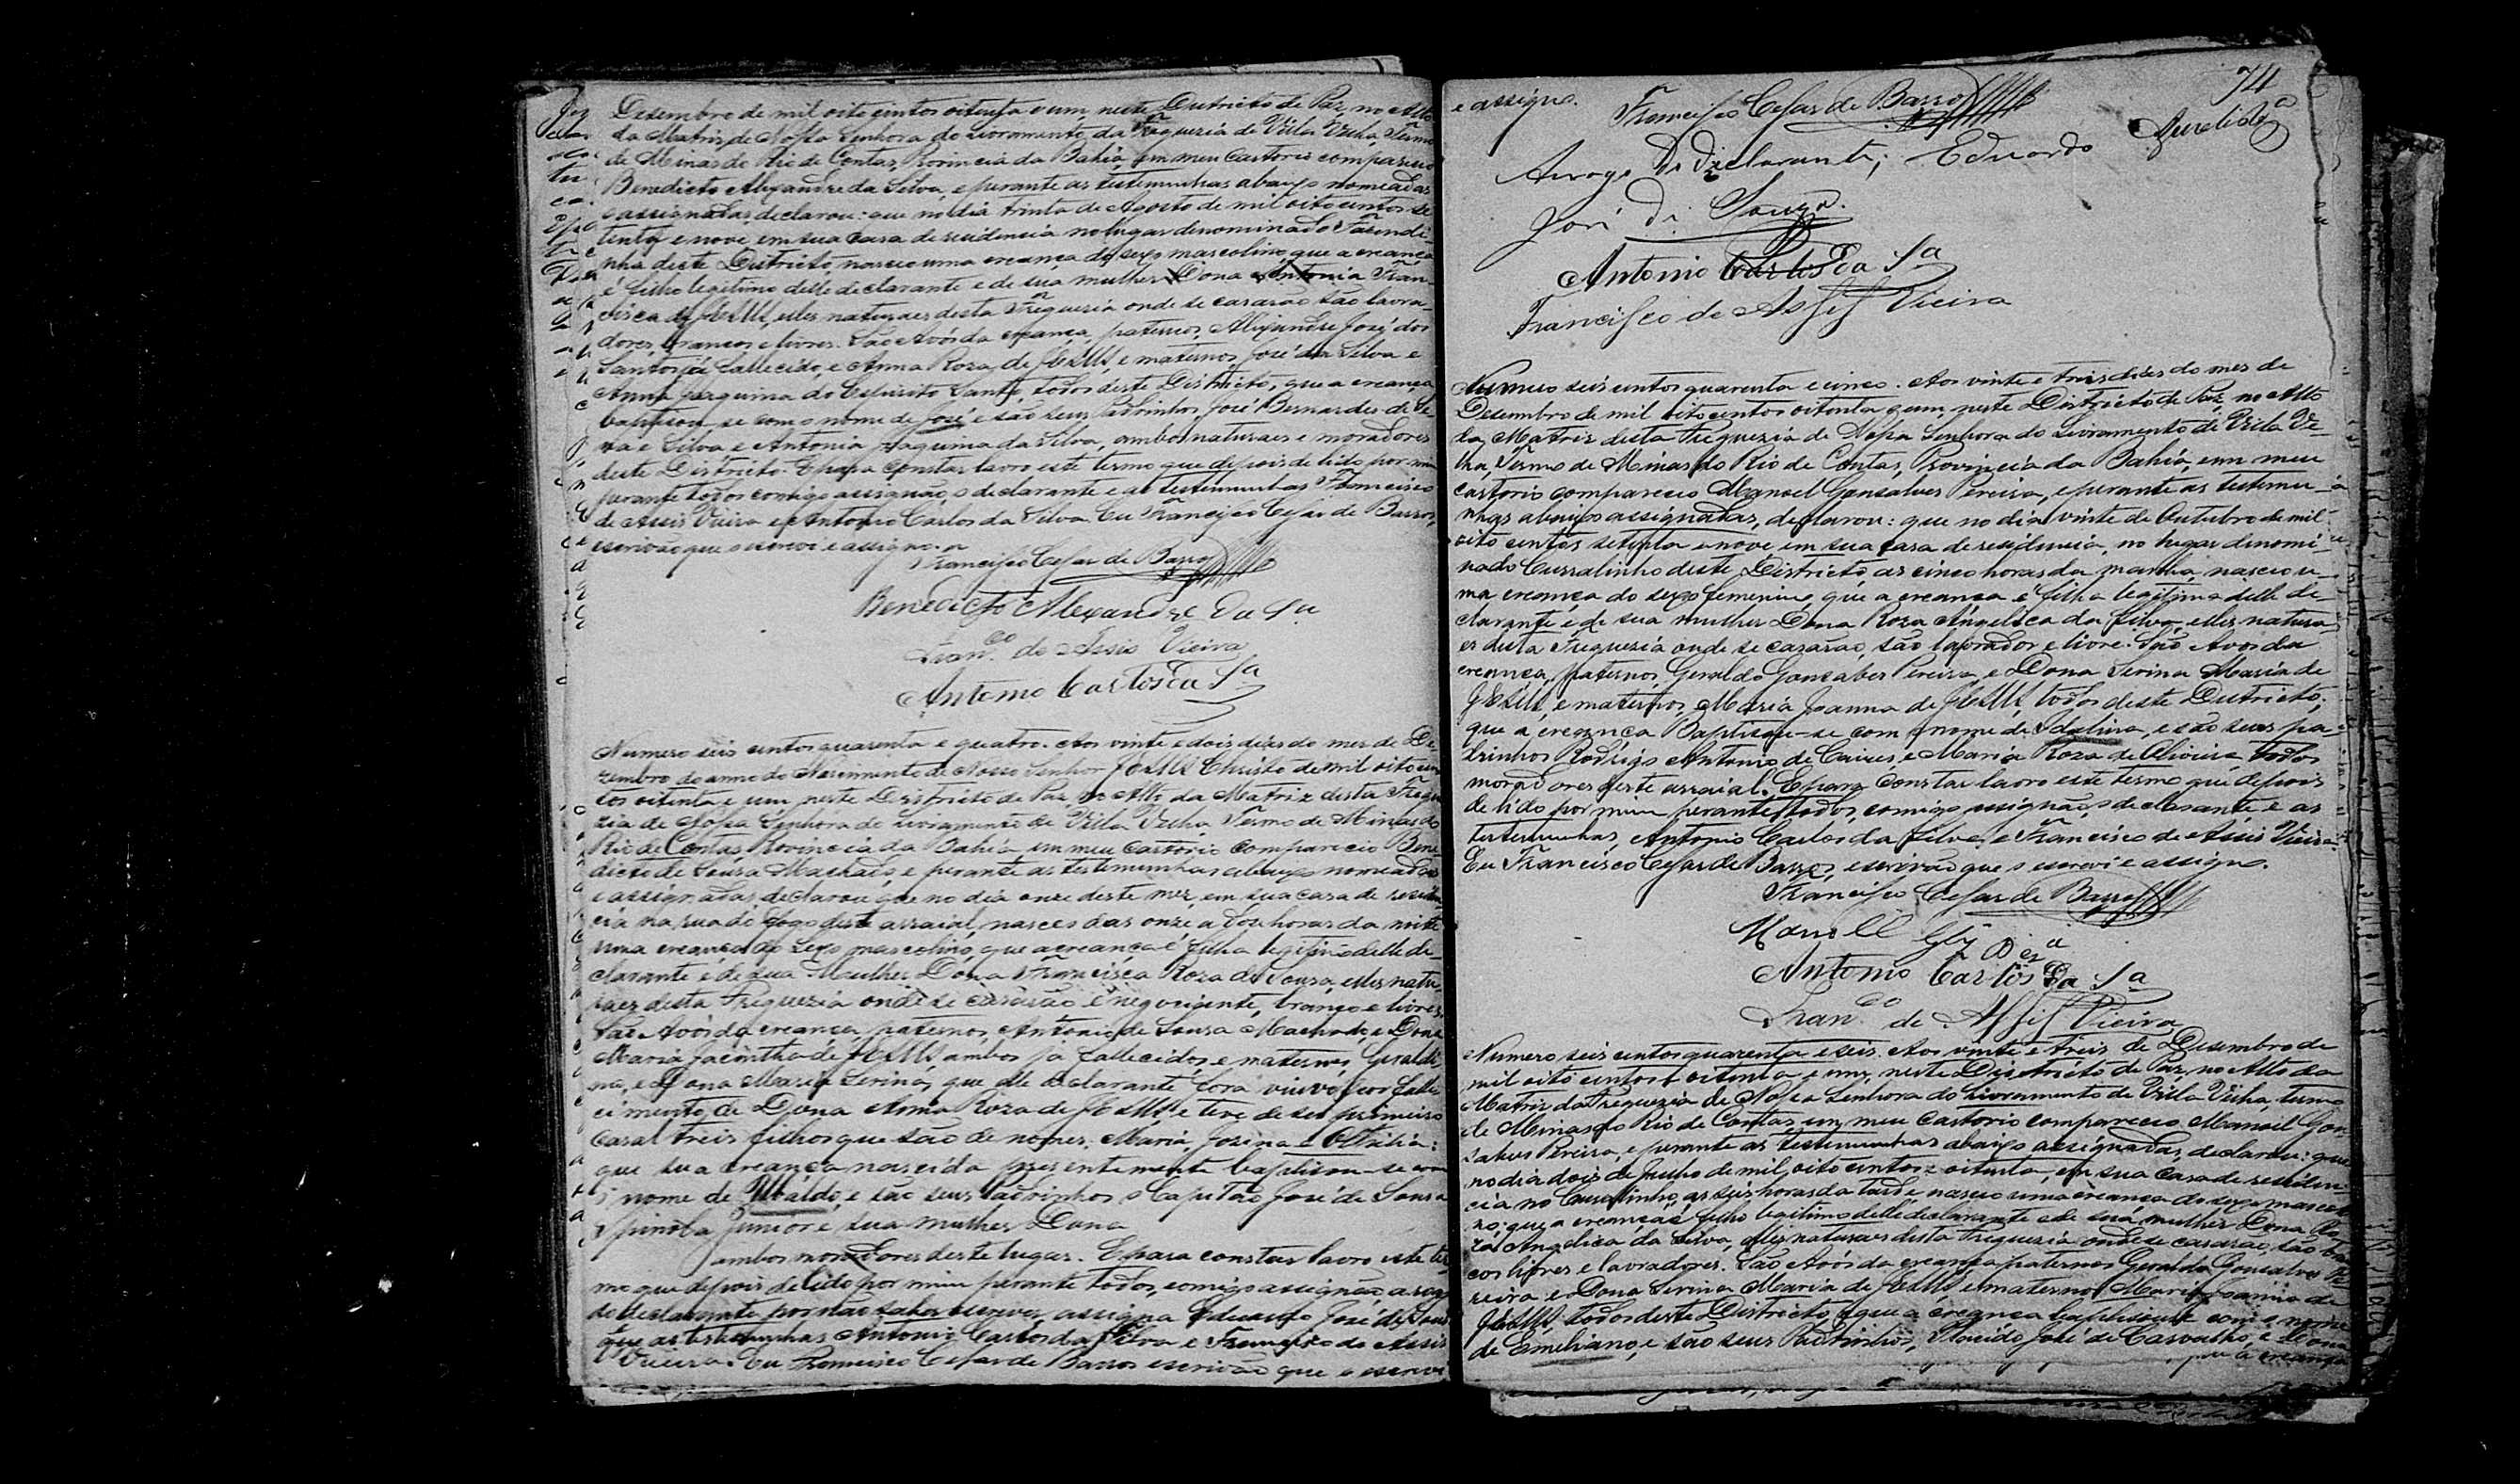 Desembro de mil oito centos oitenta e um, neste Districto de Paz, no Alto
da Matriz de Nossa Senhora do Livramento, da Freguezia de Villa Velha, Termo
de Minas do Rio de Contas, Provincia da Bahia, em meu Cartorio compareceo
Benedicto Alexandre da Silva, e perante as testemunhas abaixo nomeadas
e assignadas, declarou: que no dia trinta de Agosto de mil oito centos se
tenta e nove em sua Casa de residencia no lugar denominado Fasendi
nha deste Districto, nasceo uma creança do sexo mascolino, que a creança
é filho legitimo delle declarante e de sua mulher Dona Antonia Fran
cisca de JESUS, elles naturaes desta Freguezia onde se casarão são lavra
dores, brancos e livres. São Avós da creança, paternos, Alexandre José dos
Santos já fallecido, e Anna Roza de JESUS, e maternos José da Silva e
Anna Joaquina do Espirito Santo, todos deste Districto, que a creança
baptisou-se com o nome de José e são seus Padrinhos José Bernardes de
e Silva e Antonia Joaquina da Silva, ambos naturaes e moradores
deste Districto. E para constar lavro este termo que depois de lido por mim
perante todos comigo assignão, o declarante e as testemunhas Francisco
de Assis Vieira e Antonio Carlos da Silva. Eu Francisco Cesar de Barros,
escrivão que o escrevi e assigno.
Francisco Cesar de Barros
Benedicto Alexandre da Sa
Franco de Assis Vieira
Antonio Carlos da Sa
Numero seis centos quarenta e quatro. Aos vinte e dois dias do mes de De
zembro do anno do Nascimento de Nosso Senhor JESUS Christo de mil oito cen
tos oitenta e um, neste Districto de Paz, no Alto da Matriz desta Fregue
zia de Nossa Senhora do Livramento de Villa Velha, Termo de Minas do
Rio de Contas, Provincia da Bahia em meu Cartorio compareceo Bene
dicto de Sousa Machado, e perante as testemunhas abaixo nomeadas
e assignadas, declarou que no dia onze deste mes, em sua casa de residen
cia na rua do Fogo deste arraial, nasceo das onze a doze horas da noite
uma creança do sexo mascolino, que a creança é filha legitimo delle de
clarante e de sua Mulher Dona Francisca Roza de Sousa, elles natu
raes desta Freguezia onde se casarão é negociante, branco e livres.
São Avós da creança, paternos, Antonio de Sousa Machado, e Dona
Maria Jacintha de JESUS ambos já fallecidos, e maternos, Geraldi
no, e Dona Maria Serina, que elle declarante fora viuvo por falle
cimento de Dona Anna Roza de JESUS, e teve de seu primeiro
Casal treis filhos que são de nomes, Maria, Jozina e Ottilia:
que sua creança nascida presentemente baptisou-se com
o nome de Ubaldo, e são seus Padrinhos o Capitão José de Sousa
Spinola Junior e sua mulher Dona
ambos moradores deste lugar. E para constar lavro este ter
mo que depois de lido por mim perante todos, comigo assignão, a rogo
do declarante por não saber escrever, assigna Eduardo José de Sousa
que as testemunhas Antonio Carlos da Silva e Francisco de Assis
Vieira. Eu Francisco Cesar de Barros escrivão que o escrevi
74
e assigno.
Francisco Cesar de Barros
Arrogo Do Declarante; Eduardo
José di Souza.
Antonio Carlos da Sa
Francisco de Assis Vieira
Numero seis centos quarenta e cinco. Aos vinte e treis dias do mes de
Desembro de mil oito centos oitenta e um, neste Districto de Paz, no Alto
da Matriz desta Freguezia de Nossa Senhora do Livramento de Villa Ve-
lha, Termo de Minas do Rio de Contas, Provincia da Bahia, em meu
Cartorio compareceo Manoel Gonsalves Pereira, e perante as testemu-
nhas abaixo assignadas, declarou: que no dia vinte de Outubro de mil
oito centos setenta e nove, em sua casa de residencia, no lugar denomi-
nado Curralinho deste Districto, as cinco horas da manhã, nasceo u-
ma creança do sexo feminino, que a creança é filha legitima delle de-
clarante e de sua mulher Dona Roza Angelica da Silva, elles natura-
es desta Freguezia onde se casarão, são lavrador e livre. São Avós da
creança, paternos, Geraldo Gonsalves Pereira, e Dona Serina Maria de
JESUS, e maternos, Maria Joanna de JESUS, todos deste Districto;
que a creança Baptisou-se com o nome de Idalina, e são seus pa-
drinhos Rodrigo Antonio de Caires, e Maria Roza de Oliveira todos
moradores deste arraial. E para constar lavro este termo que depois
de lido por mim perante todos, comigo assignão, o declarante, e as
testemunhas, Antonio Carlos da Silva, e Francisco de Assis Vieira.
Eu Francisco Cesar de Barros, escrivão que o escrevi e assigno.
Francisco Cesar de Barros
Manoel Glz Pera
Antonio Carlos da Sa
Franco de Assis Vieira
Numero seis centos quarenta e seis. Aos vinte e treis de Desembro de
mil oito centos e oitenta e um, neste Districto de Paz, no Alto da
Matriz da Freguezia de Nossa Senhora do Livramento de Villa Velha, termo
de Minas do Rio de Contas, em meu Cartorio compareceo Manoel Gon-
salves Pereira, e perante as testemunhas abaixo assignadas, declarou: que
no dia dois de Julho de mil oito centos e oitenta, em sua casa de residen-
cia no Curralinho, as seis horas da tarde, nasceo uma creança do sexo mascoli
no; que a creança é filho legitimo delle declarante e de sua mulher Dona Ro
za Angelica da Silva, elles naturaes desta Freguezia onde se casarão, são bran
cos livres e lavradores. São Avós da creança paternos Geraldo Gonsalves Pe
reira e Dona Serina Maria de JESUS e maternos Maria Joanna de
JESUS, todos deste Districto, que a creança baptisou-se com o nome
de Emeliano, e são seus Padrinhos, Placido José de Carvalho, e Dona